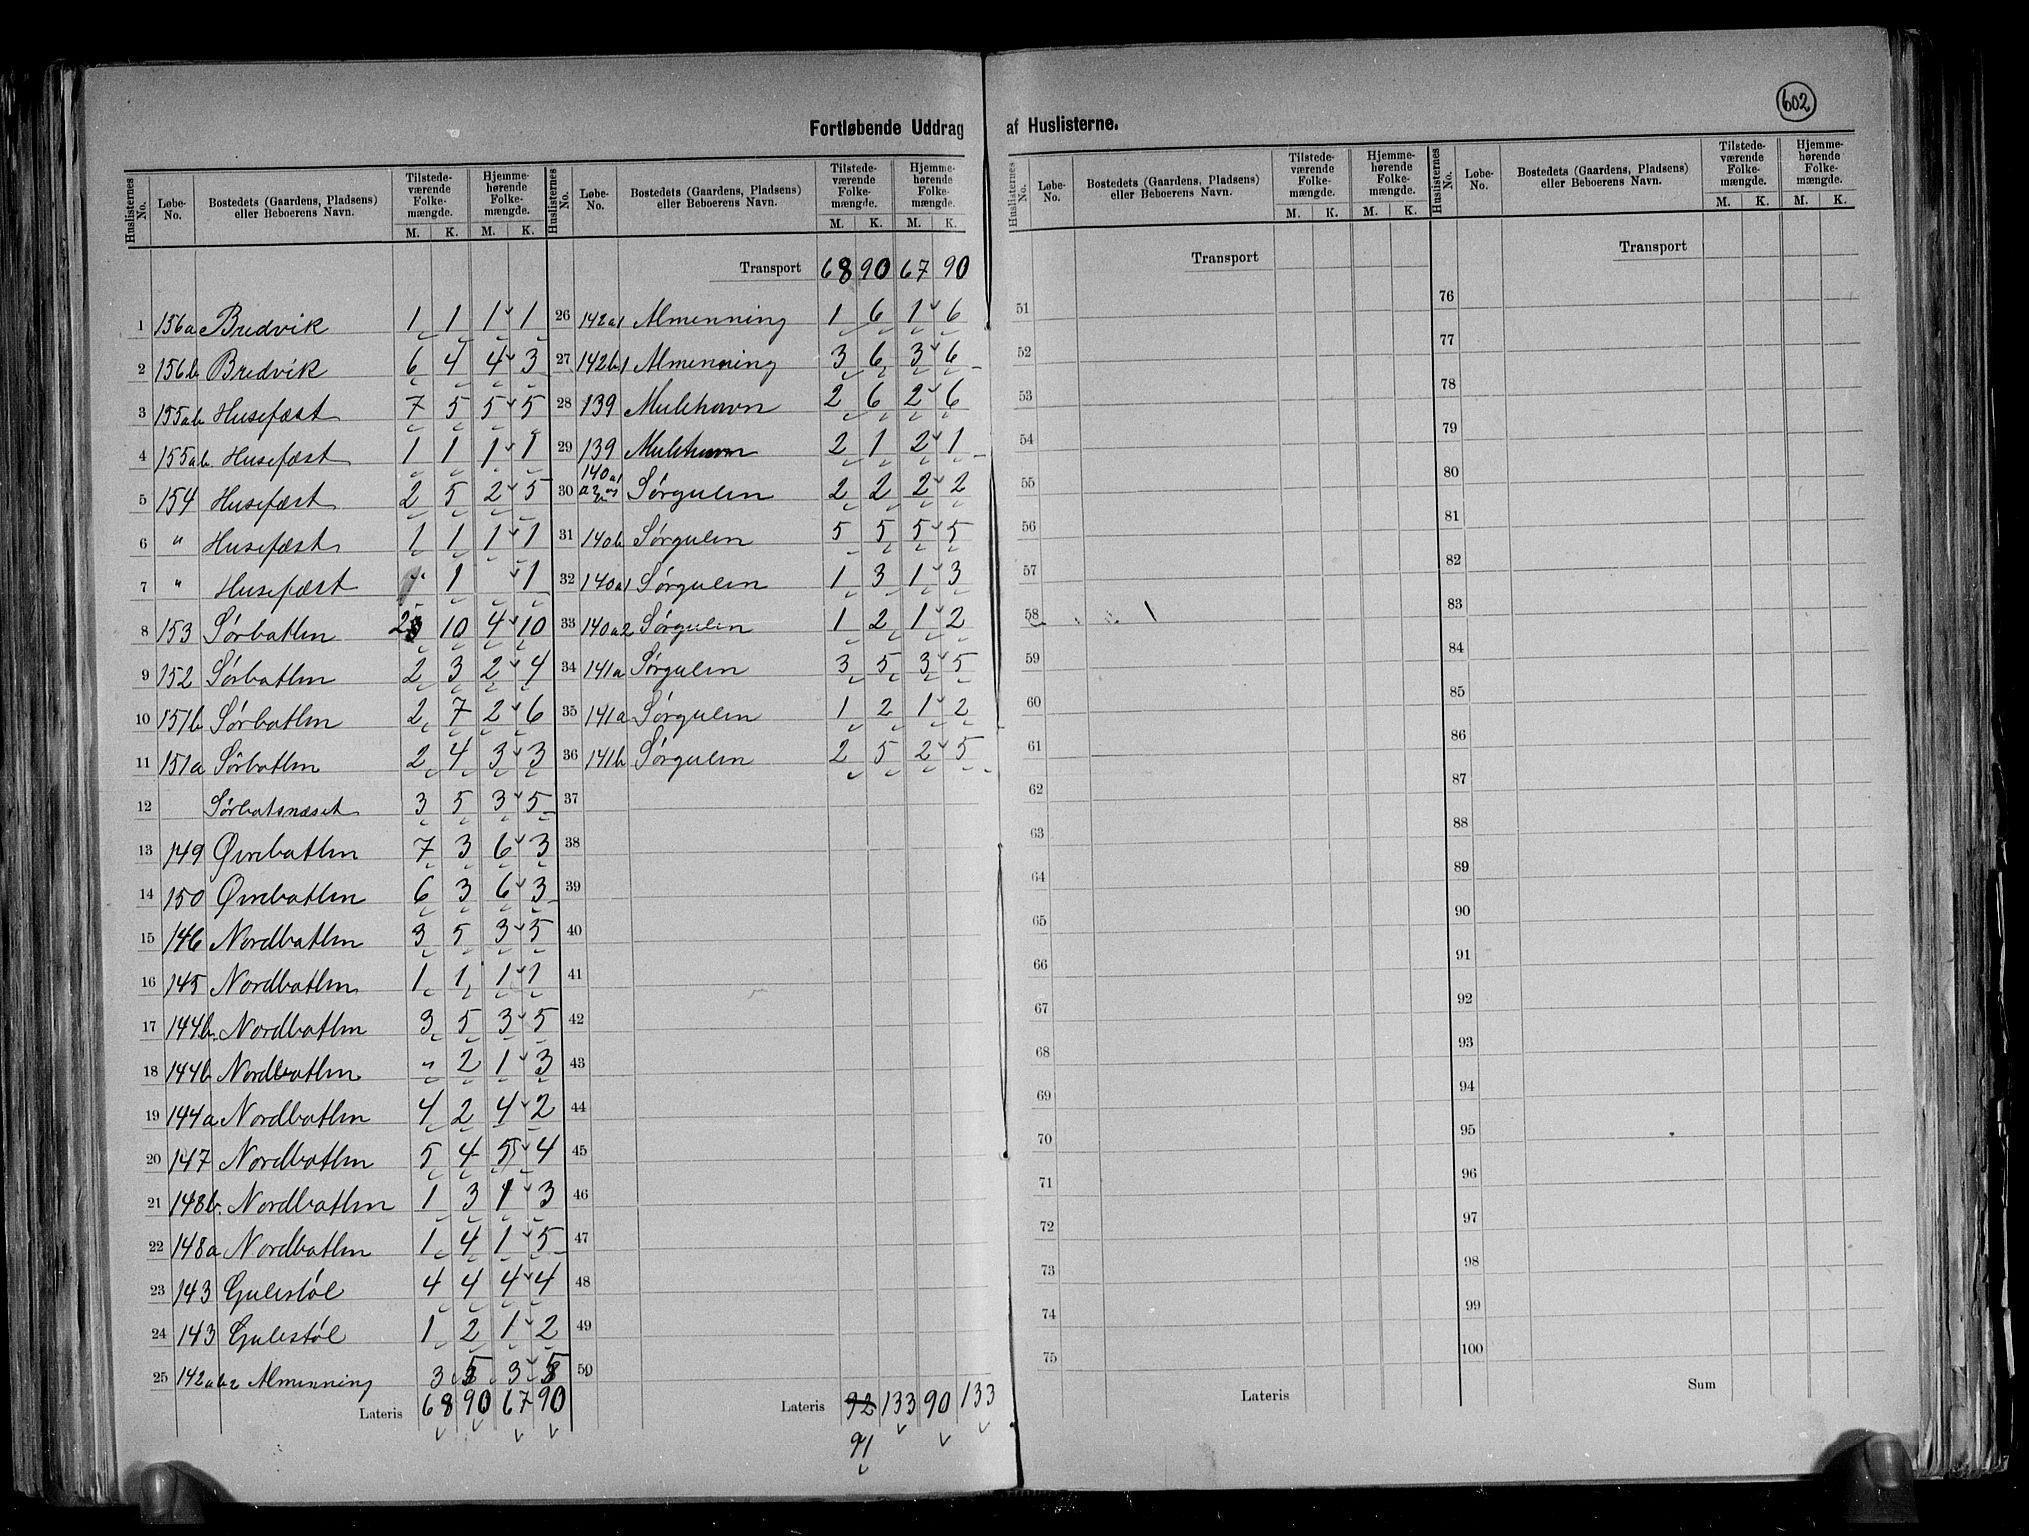 602
Fortløbende Uddrag af Huslisterne.
Huslisternes No. Løbe-No. Bostedets (Gaardens, Pladsens) eller Beboerens Navn. Tilstedeværende Folkemængde. M. K. Hjemmehørende Folkemængde. M. K.
1 156a Bredvik 1 1 1 1
2 156b Bredvik 6 4 4 3
3 155ab Husefæst 7 5 5 5
4 155ab. Husefæst 1 1 1 1
5 154 Husefæst 2 5 2 5
6 " Husefæst 1 1 1 1
7 " Husefæst 1 1
8 153 Sørbatln 10 4 10
9 152 Sørbatln 2 3 2 4
10 151b Sørbatln 2 7 2 6
11 151a Sørbatln 2 4 3 3
12 Sørbatsnæset 3 5 3 5
13 149 Øvrebatln 7 3 6 3
14 150 Øvrebatln 6 3 6 3
15 146 Nordbatln 3 5 3 5
16 145 Nordbatln 1 1 1 1
17 144b. Nordbatln 3 5 3 5
18 144b Nordbatln " 2 1 3
19 144a Nordbatln 4 2 4 2
20 147 Nordbatln 5 4 5 4
21 148b. Nordbatln 1 3 1 3
22 148a Nordbatln 1 4 1 5
23 143 Gulestøl 4 4 4 4
24 143 Gulestøl 1 2 1 2
25 142ab2 Almenning 3 5 3 5
Lateris 68 90 67 90
Huslisternes No. Løbe-No. Bostedets (Gaardens, Pladsens) eller Beboerens Navn. Tilstedeværende Folkemængde. M. K. Hjemmehørende Folkemængde. M. K.
Transport 68 90 67 90
26 142a1 Almenning 1 6 1 6
27 142b1 Almenning 3 6 3 6
28 139 Mulehavn 2 6 2 6
29 139 Mulehavn 2 1 2 1
30 140a1 Sørgulen 2 2 2 2
31 140b Sørgulen 5 5 5 5
32 140a1 Sørgulen 1 3 1 3
33 140a2 Sørgulen 1 2 1 2
34 141a Sørgulen 3 5 3 5
35 141a Sørgulen 1 2 1 2
36 141b Sørgulen 2 5 2 5
37
38
39
40
41
42
43
44
45
46
47
48
49
50
Lateris 92 133 90 133
91
Huslisternes No. Løbe-No. Bostedets (Gaardens, Pladsens) eller Beboerens Navn. Tilstedeværende Folkemængde. M. K. Hjemmehørende Folkemængde. M. K.
Transport
51
52
53
54
55
56
57
58
59
60
61
62
63
64
65
66
67
68
69
70
71
72
73
74
75
Lateris
Huslisternes No. Løbe-No. Bostedets (Gaardens, Pladsens) eller Beboerens Navn. Tilstedeværende Folkemængde. M. K. Hjemmehørende Folkemængde. M. K.
Transport
76
77
78
79
80
81
82
83
84
85
86
87
88
89
90
91
92
93
94
95
96
97
98
99
100
Sum